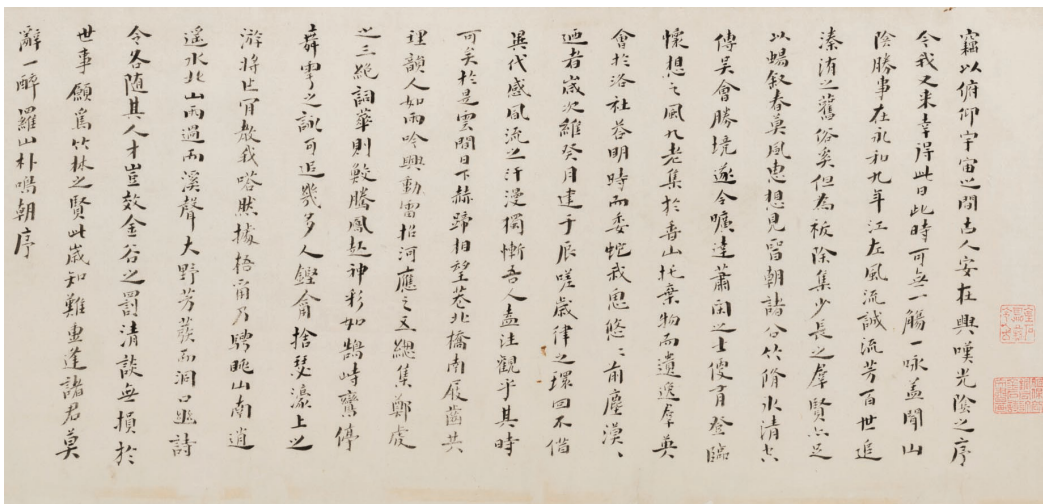 竊以俯仰宇宙之間古人安在興嘆光陰之序
今我又来幸得此日此時可無一觴一咏盖聞山
陰勝事在永和九年江左風流誠流芳百世追
溱洧之舊俗矣但為祓除集少長之羣賢六足
以暢叙春莫風惠想見晉朝諸公竹脩水清
傳吴會勝境遂令曠達蕭閑之士便有登臨
懷想之風九老集於香山托棄物而遺逸羣英
會於洛社荅明時而委蛇我思悠〻前塵漠〻
廼者歲次維癸月建于辰嗟歲律之環回不借
異代感風流之汗漫獨慚吾人盍往觀乎其時
可矣於是雲間日下赫蹏相望巷北橋南屐齒共
理韻人如雨吟興動雷招河應之五總集鄭虔
之三絶詞華則鮫騰鳳起神彩如鵠峙鸞停
舞雩之詠可追幾多人鏗爾捨瑟濠上之
游將此肎教我嗒然據梧甫乃騁眺山南逍
遥水北山雨過而溪聲大野芳發而洞口幽詩
令各随其人才豈效金谷之罰清談無損於
世事願為竹林之賢此歲知難重逢諸君莫
辭一醉羅山朴鳴朝序